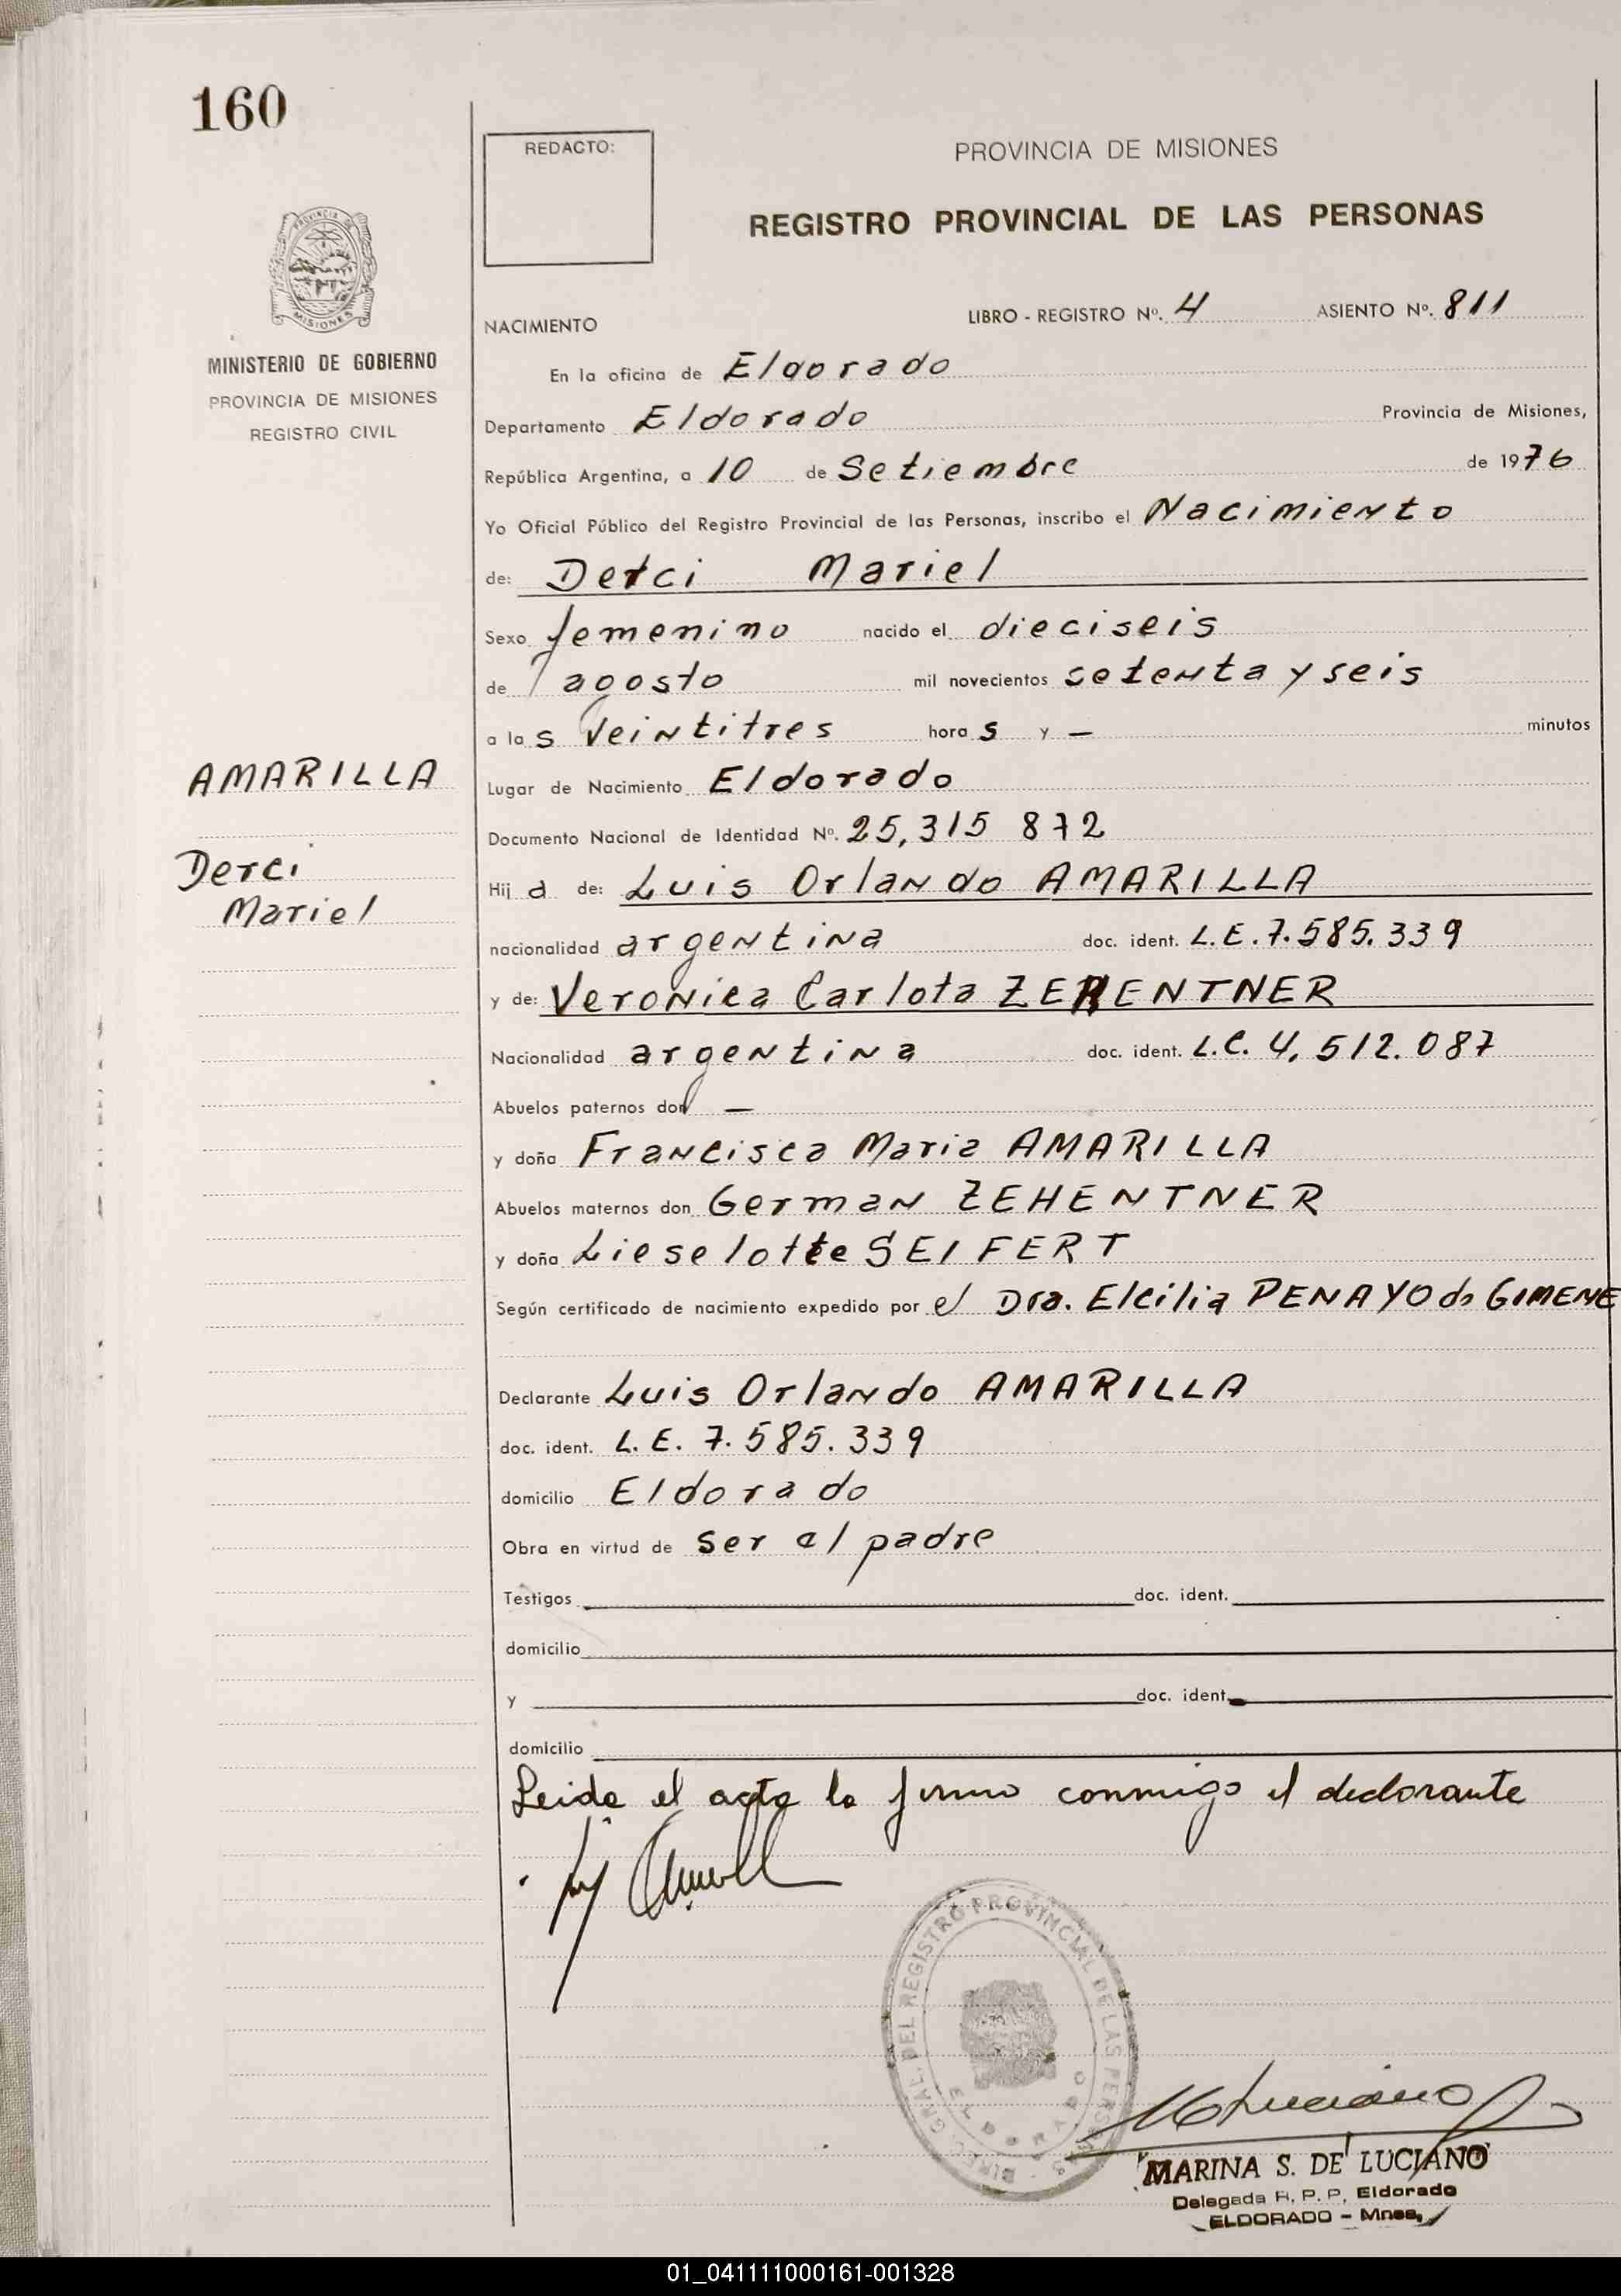 160
REDACTO:
PROVINCIA DE MISIONES
REGISTRO PROVINCIAL DE LAS PERSONAS
PROVINCIA DE
MISIONES
MINISTERIO DE GOBIERNO
PROVINCIA DE MISIONES
REGISTRO CIVIL
NACIMIENTO LIBRO - REGISTRO Nº. 4 ASIENTO Nº. 811
En la oficina de Eldorado
Departamento Eldorado Provincia de Misiones,
República Argentina, a 10 de Setiembre de 1976
Yo Oficial Público del Registro Provincial de las Personas, inscribo el Nacimiento
de: Derci Mariel
Sexo femenino nacido el dieciseis
de agosto mil novecientos setenta y seis
a las veintitres horas y — minutos
AMARILLA
Derci
Mariel
Lugar de Nacimiento Eldorado
Documento Nacional de Identidad Nº. 25,315 872
Hija de: Luis Orlando AMARILLA
nacionalidad argentina doc. ident. L.E. 7.585.339
y de: Veronica Carlota ZEHENTNER
Nacionalidad argentina doc. ident. L.C. 4,512.087
Abuelos paternos don —
y doña Francisca Maria AMARILLA
Abuelos maternos don German ZEHENTNER
y doña Lieselotte SEIFERT
Según certificado de nacimiento expedido por el Dra. Elcilia PENAYO de GIMENE
Declarante Luis Orlando AMARILLA
doc. ident. L.E. 7.585.339
domicilio Eldorado
Obra en virtud de ser el padre
Testigos doc. ident.
domicilio
y doc. ident.
domicilio
Leida el acta la firma conmigo el declarante
DIREC. GRAL. DEL REGISTRO PROVINCIAL DE LAS PERSONAS
ELDORADO
MARINA S. DE LUCIANO
Delegada R. P. P. Eldorado
ELDORADO - Mnes,
01_041111000161-001328